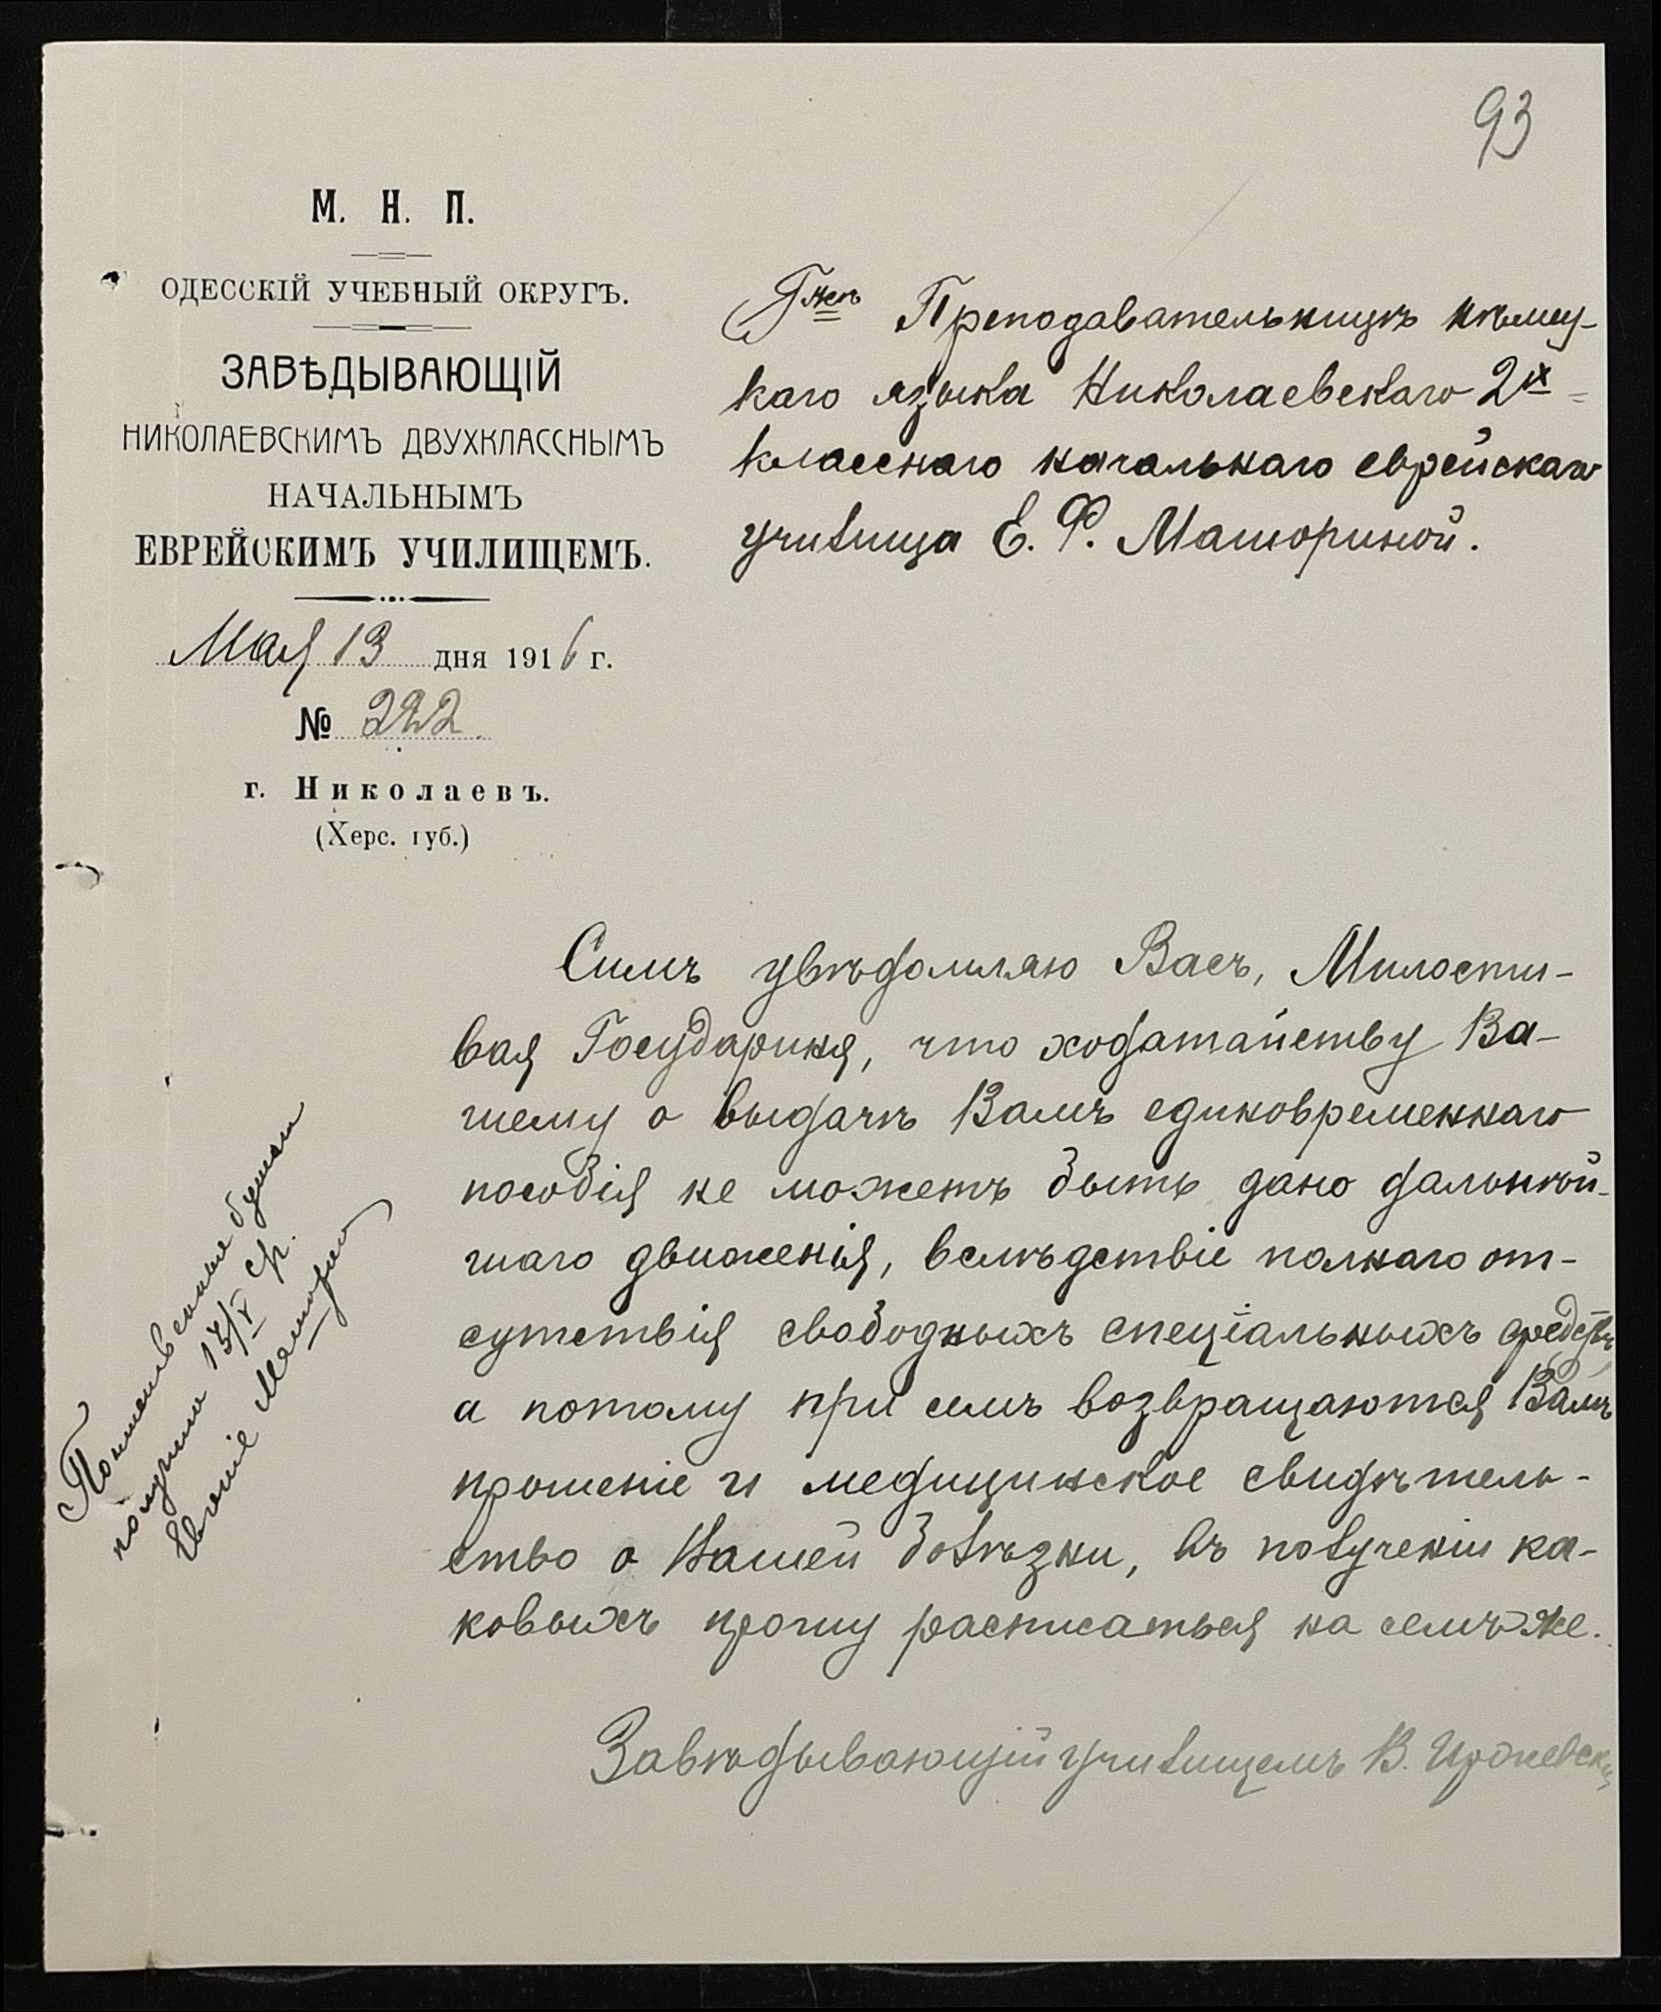 93
М. Н. П.
ОДЕССКІЙ УЧЕБНЫЙ ОКРУГЪ.
ЗАВѢДЫВАЮЩІЙ
НИКОЛАЕВСКИМЪ ДВУХКЛАССНЫМЪ
НАЧАЛЬНЫМЪ
ЕВРЕЙСКИМЪ УЧИЛИЩЕМЪ.
Мая 13 дня 1916 г.
№ 222.
г. Николаевъ.
(Херс. губ.)
Г-жѣ Преподавательницѣ нѣмец-
каго языка Николаевскаго 2х=
класснаго начальнаго еврейскаго
училища Е. Ф. Маториной.
Симъ увѣдомляю Васъ, Милости-
вая Государиня, что ходатайству Ва-
шему о выдачѣ Вамъ единовременнаго
пособія не можетъ быть дано дальнѣй-
шаго движенія, вслѣдствіе полнаго от-
сутствія свободныхъ спеціальныхъ средствъ,
а потому при семъ возвращаются Вамъ
прошеніе и медицинское свидѣтель-
ство о Вашей болѣзни, въ полученіи ка-
ковыхъ прошу расписаться на семъ же.
Завѣдывающій училищемъ В.
бумаги
получила 13/V с/г.